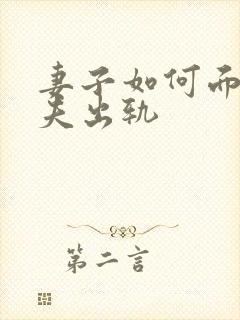 妻子如何面
夫出轨
第二言